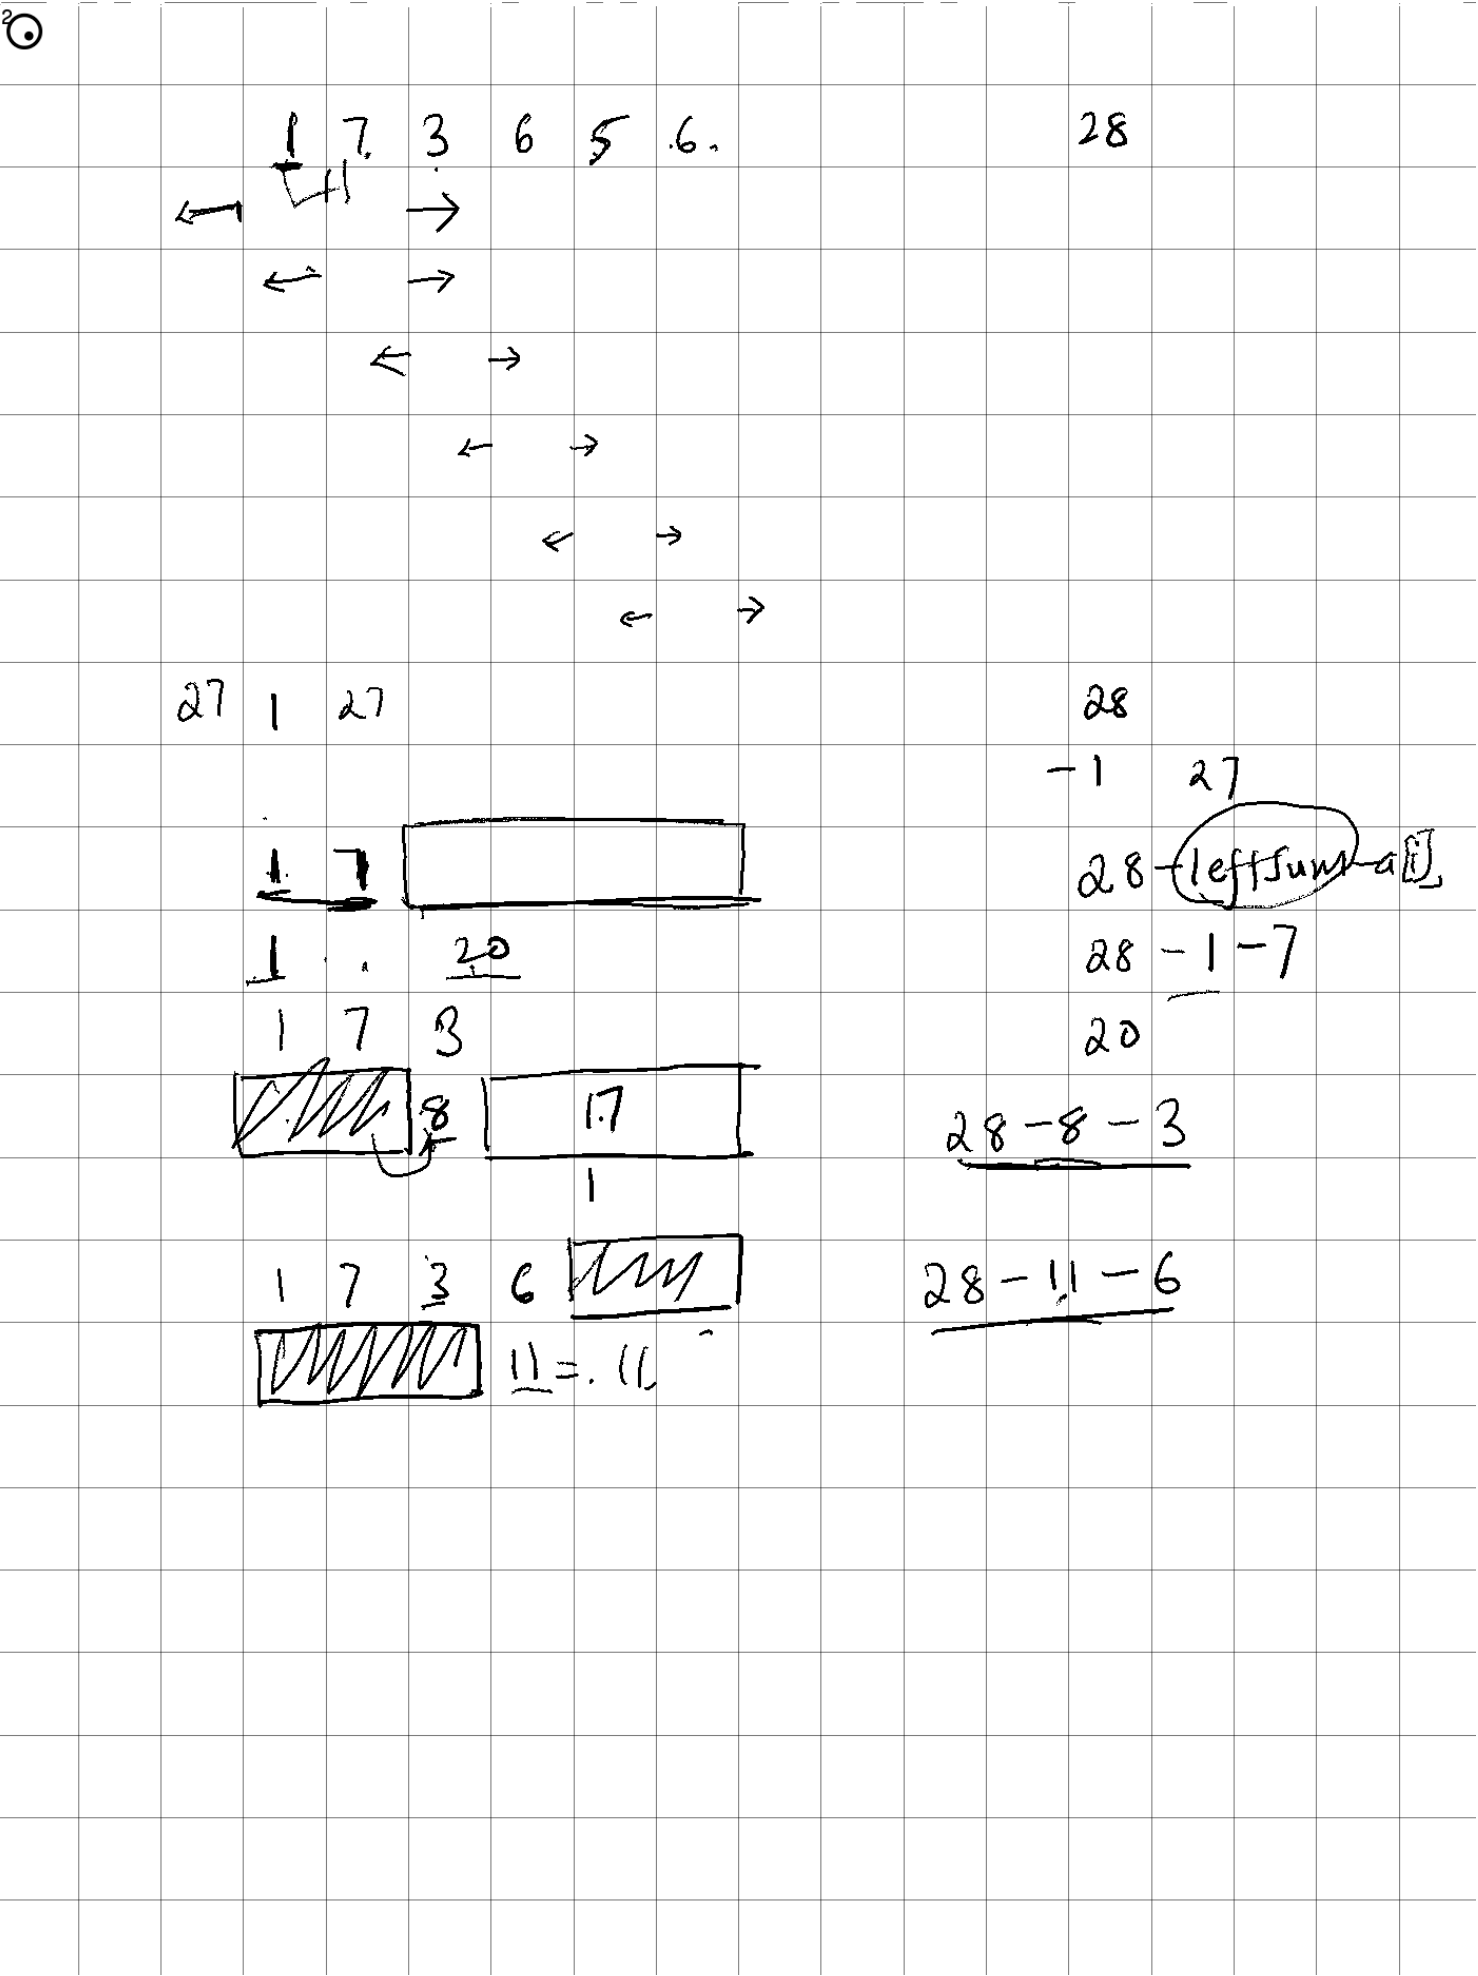 2
1 7. 3 6 5 .6. 28
27 1 27 28
-1 27
1 7 28-leftSum-a[i]
1 20 28 - 1 - 7
1 7 3 20
8 17 28-8-3
1
1 7 3 6 28-11-6
11 = 11